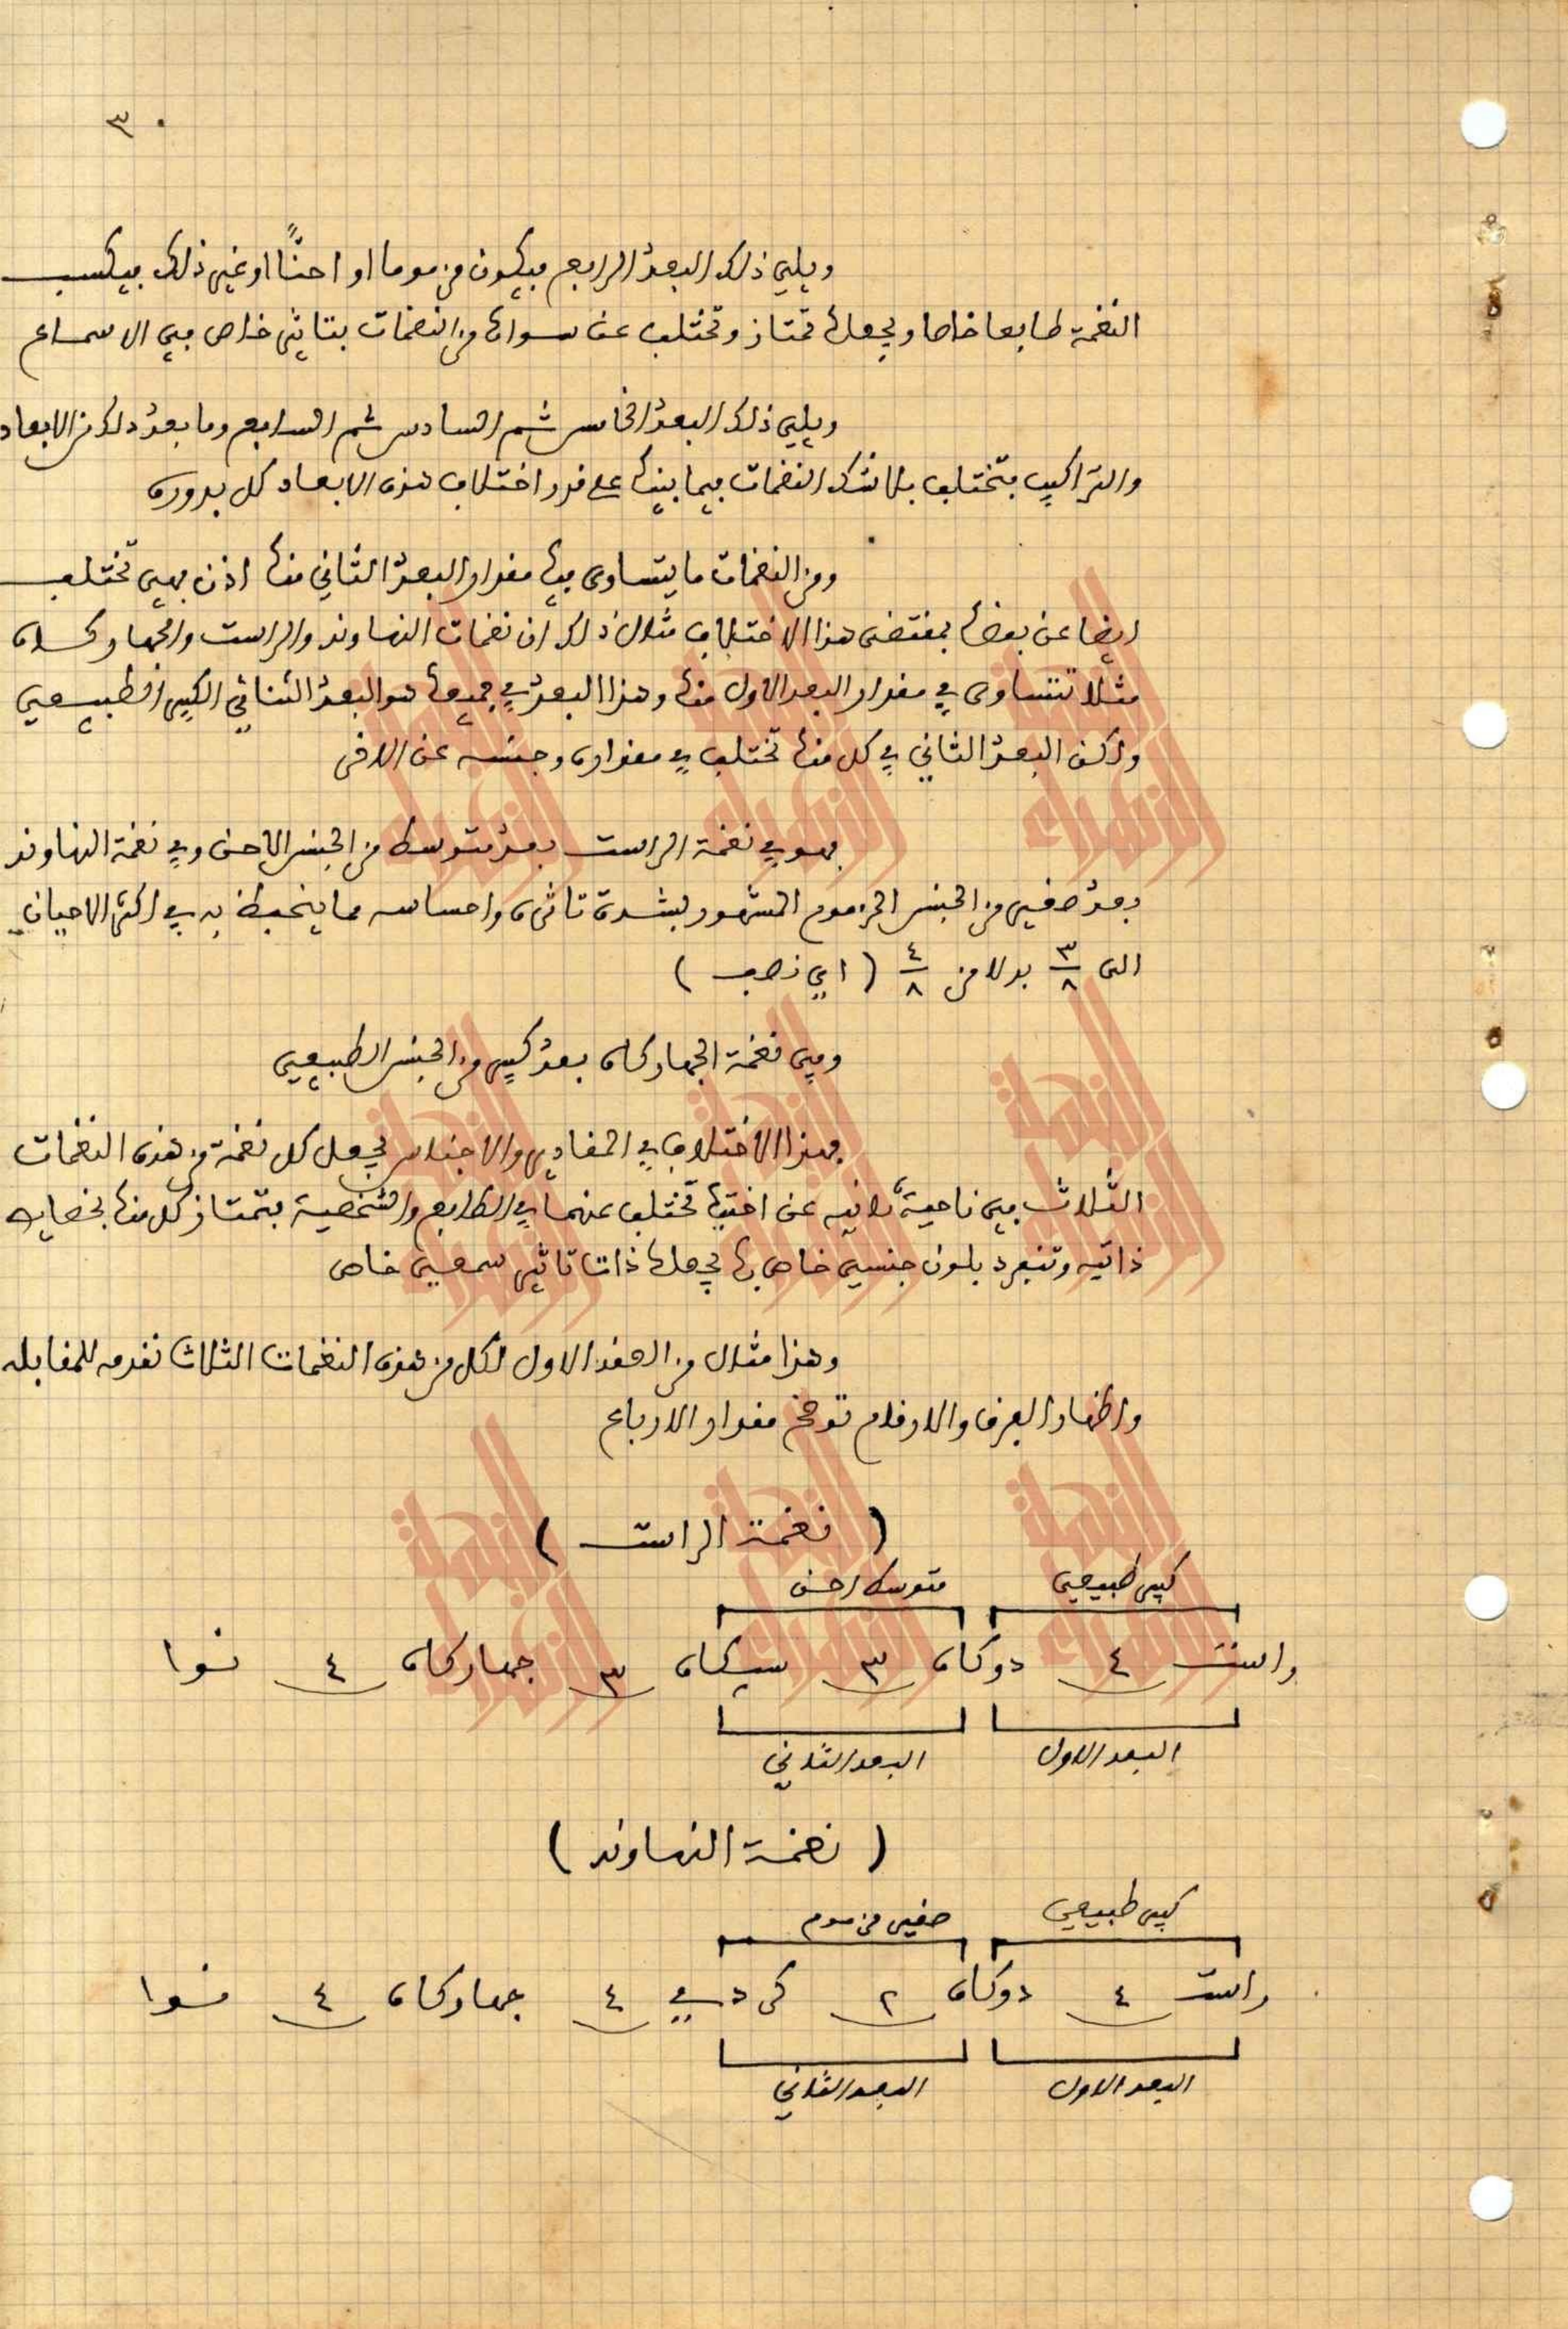 ٣٠
ويلي ذلك البعد الرابع فيكون مزموما او احنّاً او غير ذلك فيكسب
النغمة طابعا خاصا ويجعلها تمتاز وتختلف عن سواها من النغمات بتاثير خاص في الاسماع
ويلي ذلك البعد الخامس ثم السادس ثم السابع وما بعد ذلك من الابعاد
والتراكيب فتختلف بلا شك النغمات فيما بينها على قدر اختلاف هذه الابعاد كل بدوره
ومن النغمات ما يتساوى فيها مقدار البعد الثاني منها اذن فهي تختلف
ايضا عن بعضها بمقتضى هذا الاختلاف مثال ذلك ان نغمات النهاوند والراست والجهاركاه
مثلا تتساوى في مقدار البعد الاول منها وهذا البعد في جميعها هو البعد الثنائي الكبير الطبيعي
ولكن البعد الثاني في كل منها تختلف في مقداره وجنسه عن الاخر
فهو في نغمة الراست بعد متوسط من الجنس الاحن وفي نغمة النهاوند
بعد صغير من الجنس المزموم المشهور بشدة تاثره واحساسه مما ينحط به في اكثر الاحيان
الى ٣/٨ بدلا من ٤/٨ ( اي نصف )
وفي نغمة الجهاركاه بعد كبير من الجنس الطبيعي
فهذا الاختلاف في المقادير والاجناس يجعل كل نغمة من هذه النغمات
الثلاث في ناحية نائيه عن اختيها تختلف عنهما في الطابع والشخصية فتمتاز كل منها بخصايص
ذاتيه وتنفرد بلون جنسي خاص بها يجعلها ذات تاثير سمعي خاص
وهذا مثال من العقد الاول لكل من هذه النغمات الثلاث نقدمه للمقابله
واظهار الفرق والارقام توضح مقدار الارباع
( نغمة الراست )
كبير طبيعي متوسط احن
راست ٤ دوكاه ٣ سيكاه ٣ جهاركاه ٤ نوا
البعد الاول البعد الثاني
( نغمة النهاوند )
كبير طبيعي صغير مزموم
راست ٤ دوكاه ٢ كردي ٤ جهاركاه ٤ نوا
البعد الاول البعد الثاني